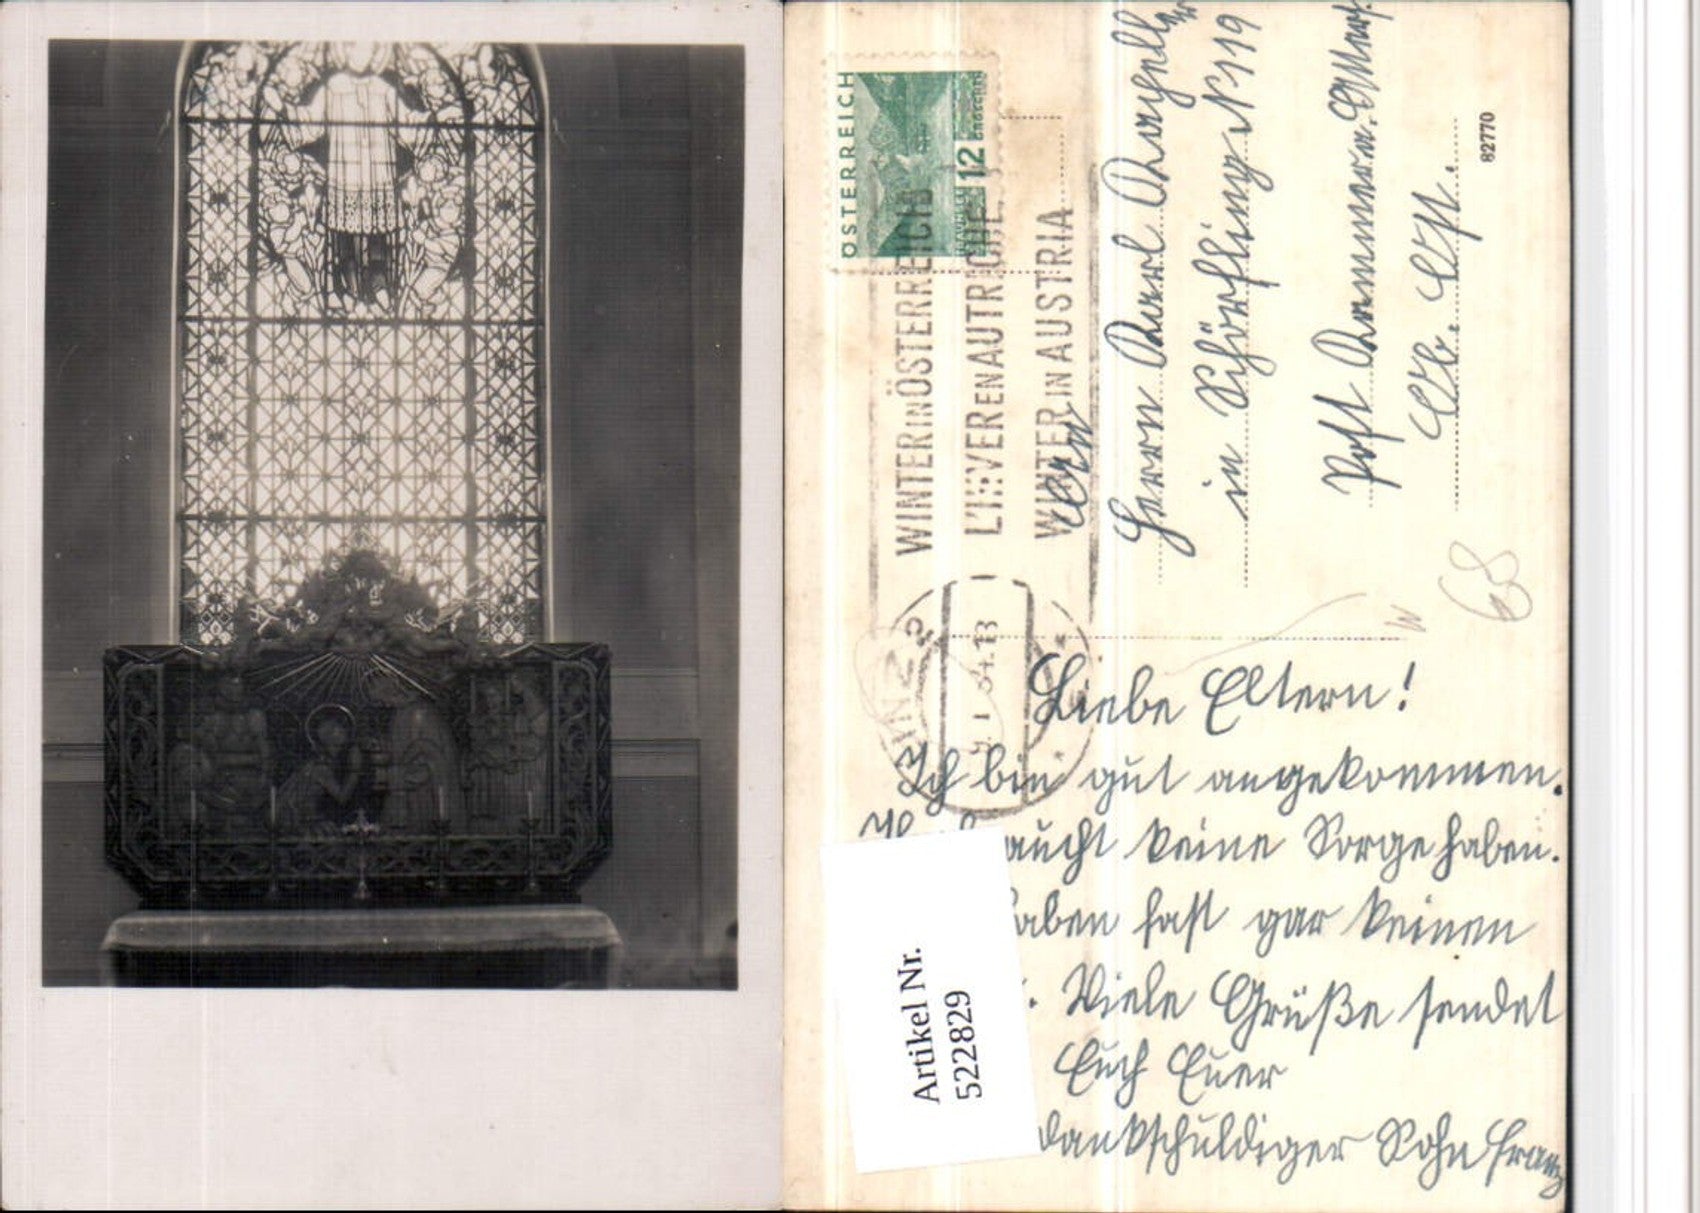 ÖSTERREICH
12
GROSCHEN
TRAUNSEE
WINTER IN ÖSTERREICH
L'HIVER EN AUTRICHE
WINTER IN AUSTRIA
LINZ 2
An
Herrn
in Schörfling N. 119
Post Kammer
Ob. Öst.
82770
68
W
Liebe Eltern!
Ich bin gut angekommen.
Ihr braucht keine Sorge haben.
haben fast gar keinen
Viele Grüße sendet
Euch Euer
dankschuldiger Sohn Franz
Artikel Nr.
522829